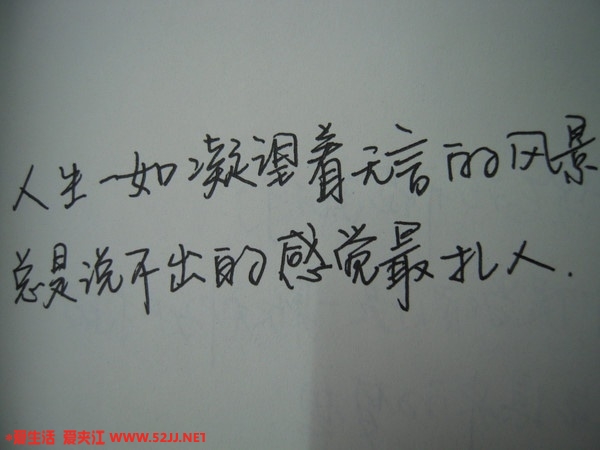 人生一如凝望着无言的风景
总是说不出的感觉最扎人.
爱生活 爱夹江 WWW.52JJ.NET